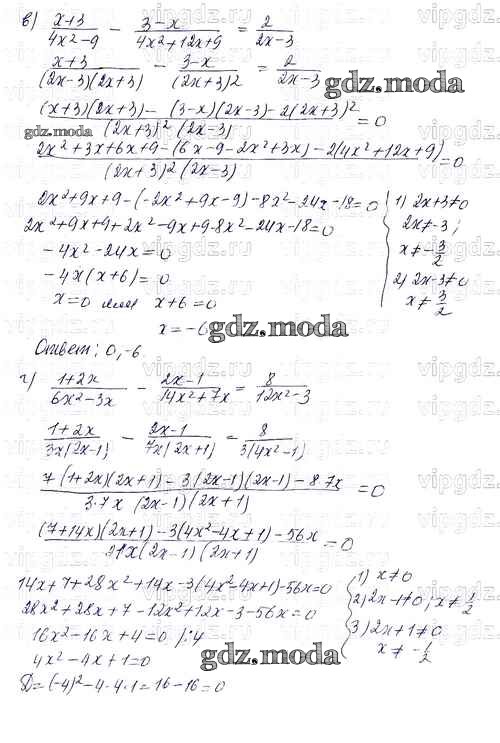 в) (x+3)/(4x²-9) - (3-x)/(4x²+12x+9) = 2/(2x-3)
(x+3)/((2x-3)(2x+3)) - (3-x)/(2x+3)² = 2/(2x-3)
gdz.moda
((x+3)(2x+3) - (3-x)(2x-3) - 2(2x+3)²)/((2x+3)²(2x-3)) = 0
gdz.moda
(2x²+3x+6x+9-(6x-9-2x²+3x)-2(4x²+12x+9))/((2x+3)²(2x-3)) = 0
2x²+9x+9-(-2x²+9x-9)-8x²-24x-18=0
2x²+9x+9+2x²-9x+9-8x²-24x-18=0
-4x²-24x=0
-4x(x+6)=0
x=0 или x+6=0
x=-6
1) 2x+3≠0
2x≠-3;
x≠-3/2
2) 2x-3≠0
x≠3/2
gdz.moda
Ответ: 0, -6.
г) (1+2x)/(6x²-3x) - (2x-1)/(14x²+7x) = 8/(12x²-3)
(1+2x)/(3x(2x-1)) - (2x-1)/(7x(2x+1)) = 8/(3(4x²-1))
(7(1+2x)(2x+1)-3(2x-1)(2x-1)-8·7x)/(3·7x(2x-1)(2x+1)) = 0
((7+14x)(2x+1)-3(4x²-4x+1)-56x)/(21x(2x-1)(2x+1)) = 0
14x+7+28x²+14x-3(4x²-4x+1)-56x=0
28x²+28x+7-12x²+12x-3-56x=0
16x²-16x+4=0 /:4
4x²-4x+1=0
D=(-4)²-4·4·1=16-16=0
1) x≠0
2) 2x-1≠0; x≠1/2
3) 2x+1≠0
x≠-1/2
gdz.moda
vipgdz.ru